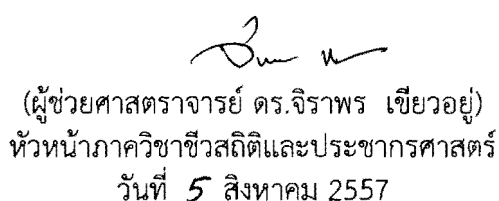 (ผู้ช่วยศาสตราจารย์ ดร.จิราพร เขียวอยู่)
หัวหน้าภาควิชาชีวสถิติและประชากรศาสตร์
วันที่ 5 สิงหาคม 2557